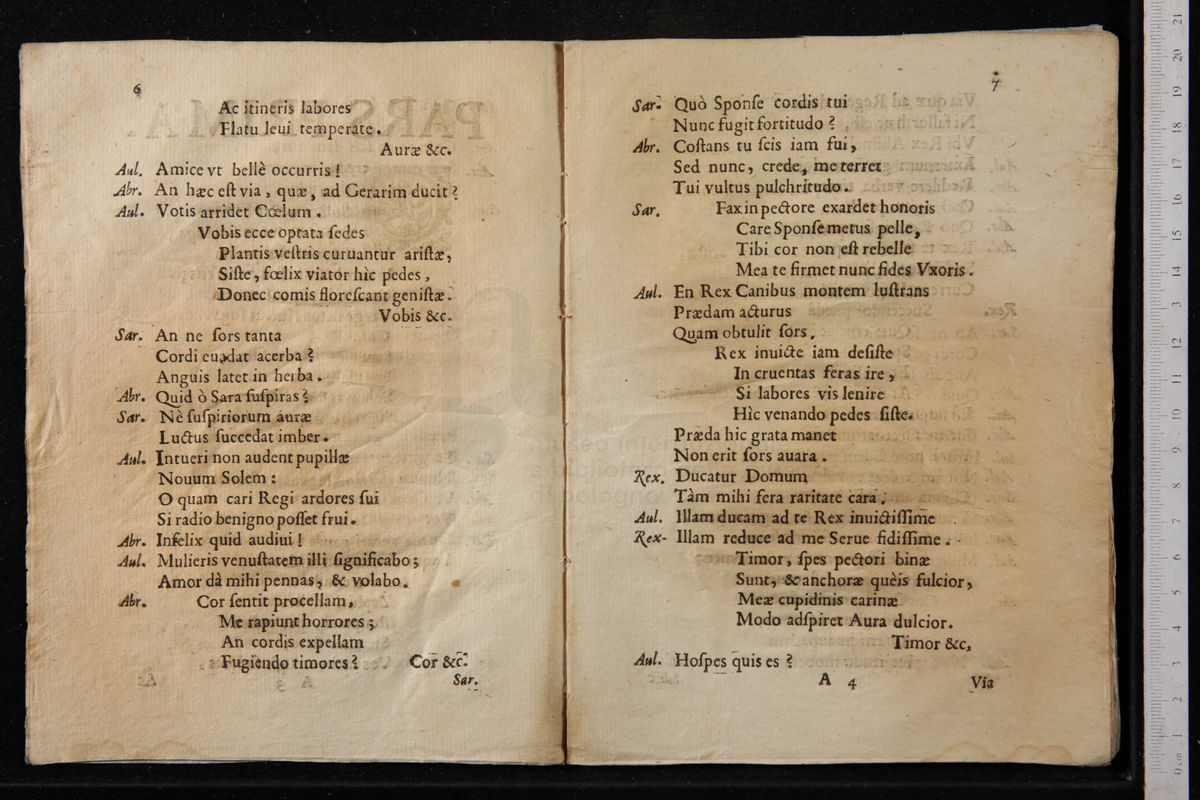 6
Ac itineris labores
Flatu leui temperate.
Auræ &c.
Aul. Amice vt bellè occurris!
Abr. An hæc eſt via, quæ, ad Gerarim ducit?
Aul. Votis arridet Cœlum.
Vobis ecce optata ſedes
Plantis veſtris curuantur ariſtæ,
Siſte, fœlix viator hìc pedes,
Donec comis floreſcant geniſtæ.
Vobis &c.
Sar. An ne ſors tanta
Cordi euadat acerba?
Anguis latet in herba.
Abr. Quid ò Sara ſuſpiras?
Sar. Nè ſuſpiriorum auræ
Luctus ſuccedat imber.
Aul. Intueri non audent pupillæ
Nouum Solem:
O quam cari Regi ardores ſui
Si radio benigno poſſet frui.
Abr. Infelix quid audiui!
Aul. Mulieris venuſtatem illi ſignificabo;
Amor dà mihi pennas, & volabo.
Abr. Cor ſentit procellam,
Me rapiunt horrores;
An cordis expellam
Fugiendo timores? Cor &c.
Sar.
7
Sar. Quò Sponſe cordis tui
Nunc fugit fortitudo?
Abr. Coſtans tu ſcis iam fui,
Sed nunc, crede, me terret
Tui vultus pulchritudo.
Sar. Fax in pectore exardet honoris
Care Sponſe metus pelle,
Tibi cor non eſt rebelle
Mea te firmet nunc fides Vxoris.
Aul. En Rex Canibus montem luſtrans
Prædam acturus
Quam obtulit ſors.
Rex inuicte iam deſiſte
In cruentas feras ire,
Si labores vis lenire
Hìc venando pedes ſiſte.
Præda hic grata manet
Non erit ſors auara.
Rex. Ducatur Domum
Tàm mihi fera raritate cara.
Aul. Illam ducam ad te Rex inuictiſſime
Rex- Illam reduce ad me Serue fidiſſime.
Timor, ſpes pectori binæ
Sunt, & anchoræ quèis fulcior,
Meæ cupidinis carinæ
Modo adſpiret Aura dulcior.
Timor &c,
Aul. Hoſpes quis es?
A 4
Via